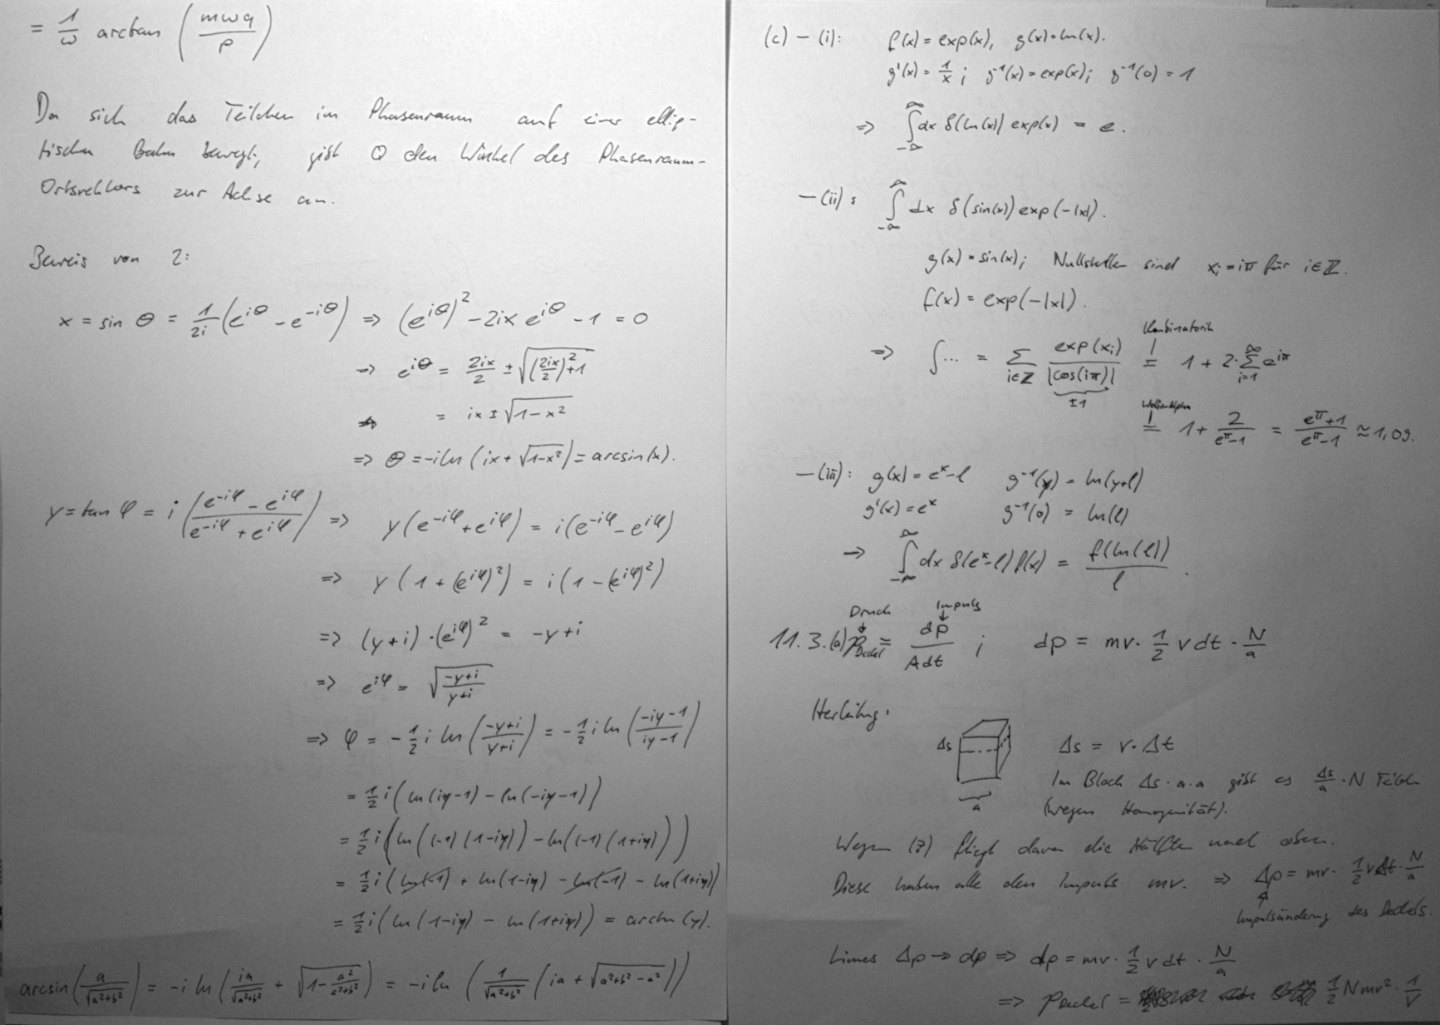 = 1/ω arctan (mωq/p)
Da sich das Teilchen im Phasenraum auf einer ellip-
tischen Bahn bewegt, gibt Q den Winkel des Phasenraum-
Ortsvektors zur Achse an.
Beweis von 2:
x = sin θ = 1/2i (e^{iθ} - e^{-iθ}) => (e^{iθ})^2 - 2ix e^{iθ} - 1 = 0
=> e^{iθ} = 2ix/2 ± √((2ix/2)^2 + 1)
= ix ± √(1-x^2)
=> θ = -i ln (ix + √(1-x^2)) = arcsin(x).
y = tan φ = i ((e^{-iφ} - e^{iφ})/(e^{-iφ} + e^{iφ})) => y (e^{-iφ} + e^{iφ}) = i(e^{-iφ} - e^{iφ})
=> y (1 + (e^{iφ})^2) = i (1 - (e^{iφ})^2)
=> (y+i) · (e^{iφ})^2 = -y+i
=> e^{iφ} = √((-y+i)/(y+i))
=> φ = -1/2 i ln ((-y+i)/(y+i)) = -1/2 i ln ((-iy-1)/(iy-1))
= 1/2 i (ln(iy-1) - ln(-iy-1))
= 1/2 i (ln((-1)(1-iy)) - ln((-1)(1+iy)))
= 1/2 i (ln(-1) + ln(1-iy) - ln(-1) - ln(1+iy))
= 1/2 i (ln(1-iy) - ln(1+iy)) = arctan(y).
arcsin(a/√(a²+b²)) = -i ln (ia/√(a²+b²) + √(1 - a²/(a²+b²))) = -i ln (1/√(a²+b²) (ia + √(a²+b²-a²)))
(c) - (i): f(x) = exp(x), g(x) = ln(x).
g'(x) = 1/x ; g^{-1}(x) = exp(x); g^{-1}(0) = 1
=> ∫_{-∞}^{∞} dx δ(ln(x)) exp(x) = e.
- (ii): ∫_{-∞}^{∞} dx δ(sin(x)) exp(-|x|).
g(x) = sin(x); Nullstellen sind x_i = iπ für i∈ℤ.
f(x) = exp(-|x|).
Kombinatorik
=> ∫... = Σ_{i∈ℤ} exp(x_i)/|cos(iπ)| = 1 + 2·Σ_{i=1}^{∞} e^{iπ}
±1
WolframAlpha
= 1 + 2/(e^π-1) = (e^π+1)/(e^π-1) ≈ 1,09.
- (iii): g(x) = e^x - l g^{-1}(y) = ln(y+l)
g'(x) = e^x g^{-1}(0) = ln(l)
=> ∫_{-∞}^{∞} dx δ(e^x - l) f(x) = f(ln(l))/l .
Druck Impuls
11.3. (a) p_{Deckel} = dp/(A dt) ; dp = mv · 1/2 v dt · N/a
Herleitung:
Δs Δs = v·Δt
a
Im Block Δs·a·a gibt es Δs/a · N Teilchen
(wegen Homogenität).
Wegen (2) fliegt davon die Hälfte nach oben.
Diese haben alle den Impuls mv. => Δp = mv · 1/2 vΔt · N/a
Impulsänderung des Deckels.
Limes Δp → dp => dp = mv · 1/2 v dt · N/a
=> p_{Deckel} = 1/2 N mv² · 1/V